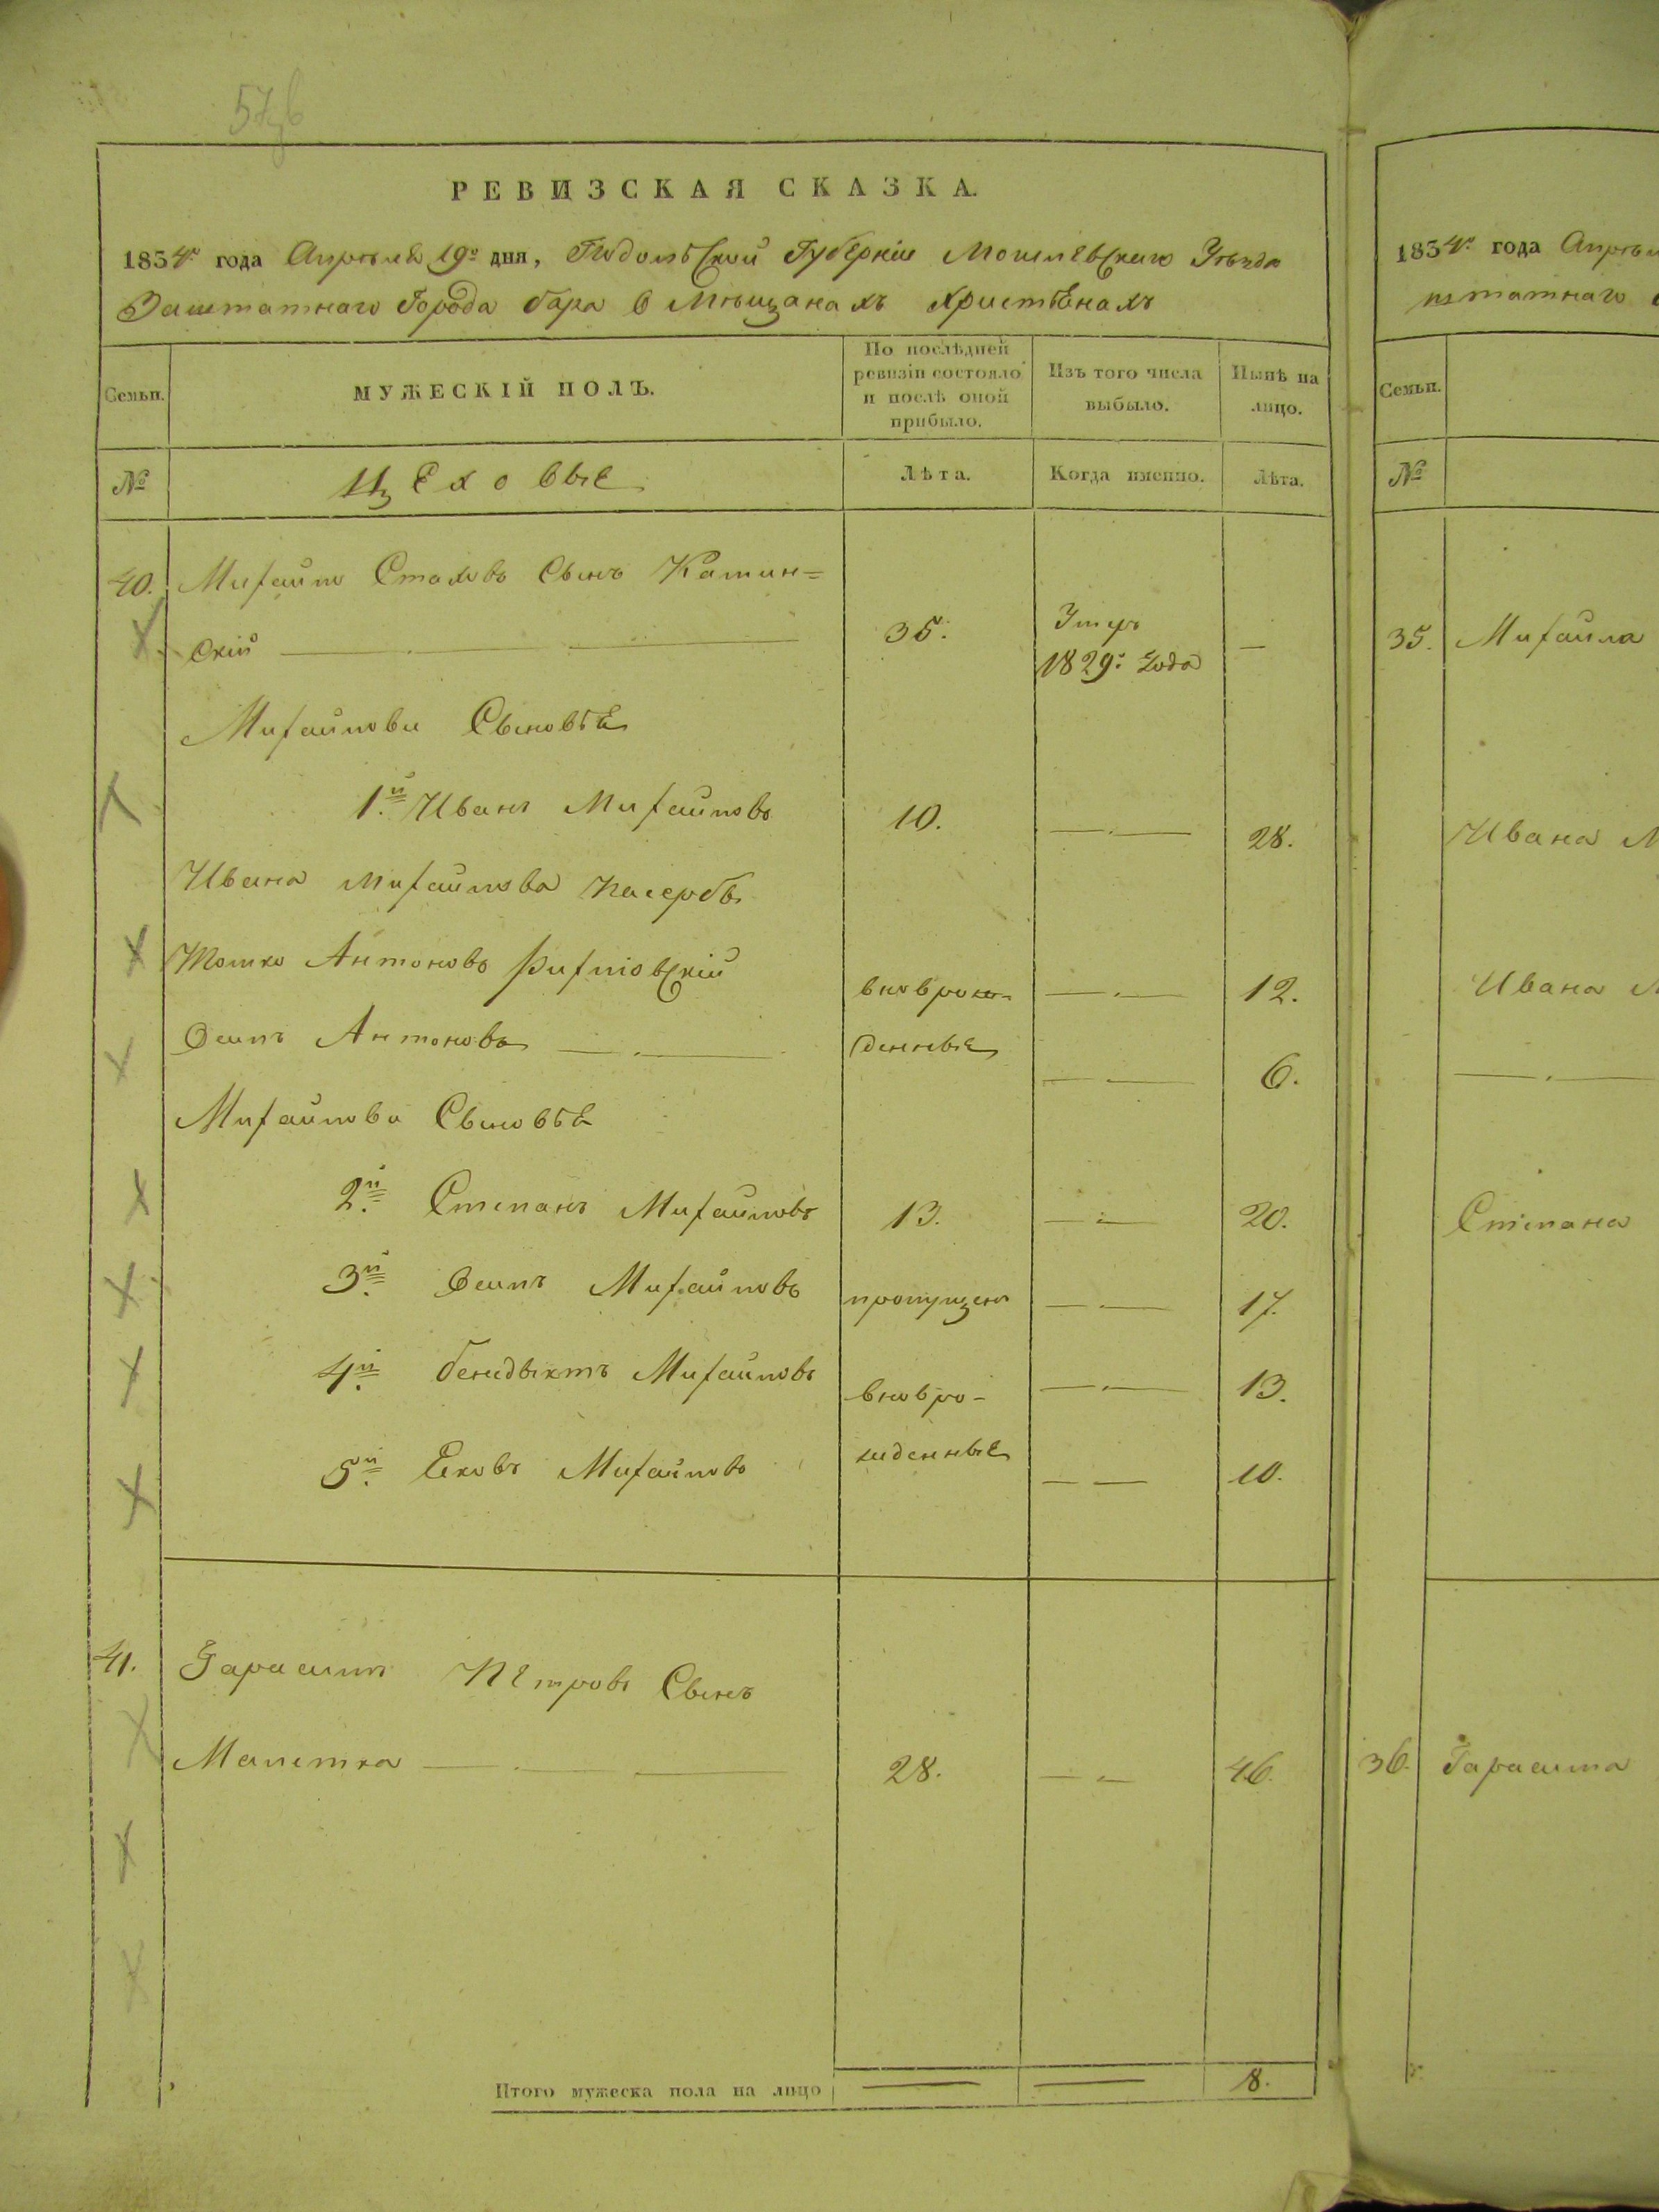 РЕВИЗСКАЯ СКАЗКА.
1834го года Апрѣля 19го дня, Подольской Губерніи Могилевскаго Уѣзда
Заштатнаго Города бара о Мѣщанахъ Христіянахъ
Семьи.
МУЖЕСКІЙ ПОЛЪ.
По послѣдней
ревизіи состояло
и послѣ оной
прибыло.
Изъ того числа
выбыло.
Нынѣ на
лицо.
№
Цеховые
Лѣта.
Когда именно.
Лѣта.
40. Михайло Стахов Сынъ Камин=
скій 35. Умеръ —
1829го Года
Михайлови Сыновья
1.й Иванъ Михайловъ 10. — 28.
Ивана Михайлова пасербы
Антоновъ вновьрож- — 12.
Осипъ Антоновъ денные — 6.
Михайлови Сыновья
2.й Степанъ Михайловъ 13. — 20.
3.й Осипъ Михайловъ пропущенъ — 17.
4.й бенедыктъ Михайловъ вновьро- — 13.
5.й Яковъ Михайловъ жденные — 10.
41. Гарасимъ Петровъ Сынъ
28. — 46.
Итого мужеска пола на лицо 8.
1834го года
штатнаго
Семьи.
№
35. Михайла
Ивана М
Ивана
Степана
36. Гарасима